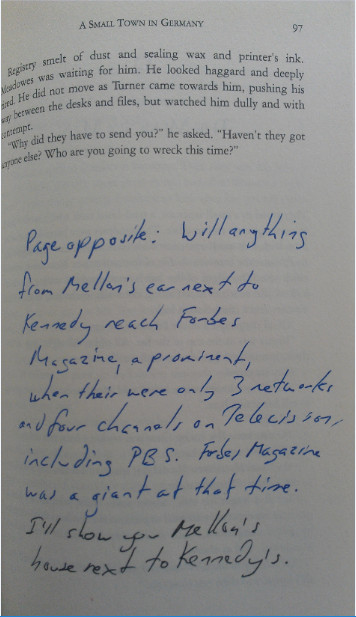 A SMALL TOWN IN GERMANY 97
Registry smelt of dust and sealing wax and printer's ink.
Meadowes was waiting for him. He looked haggard and deeply
tired. He did not move as Turner came towards him, pushing his
way between the desks and files, but watched him dully and with
contempt.
"Why did they have to send you?" he asked. "Haven't they got
anyone else? Who are you going to wreck this time?"
Page opposite: Will anything
from Mellon's ear next to
Kennedy reach Forbes
Magazine, a prominent,
when their were only 3 networks
and four channels on Television,
including PBS. Forbes Magazine
was a giant at that time.
I'll show you Mellon's
house next to Kennedy's.